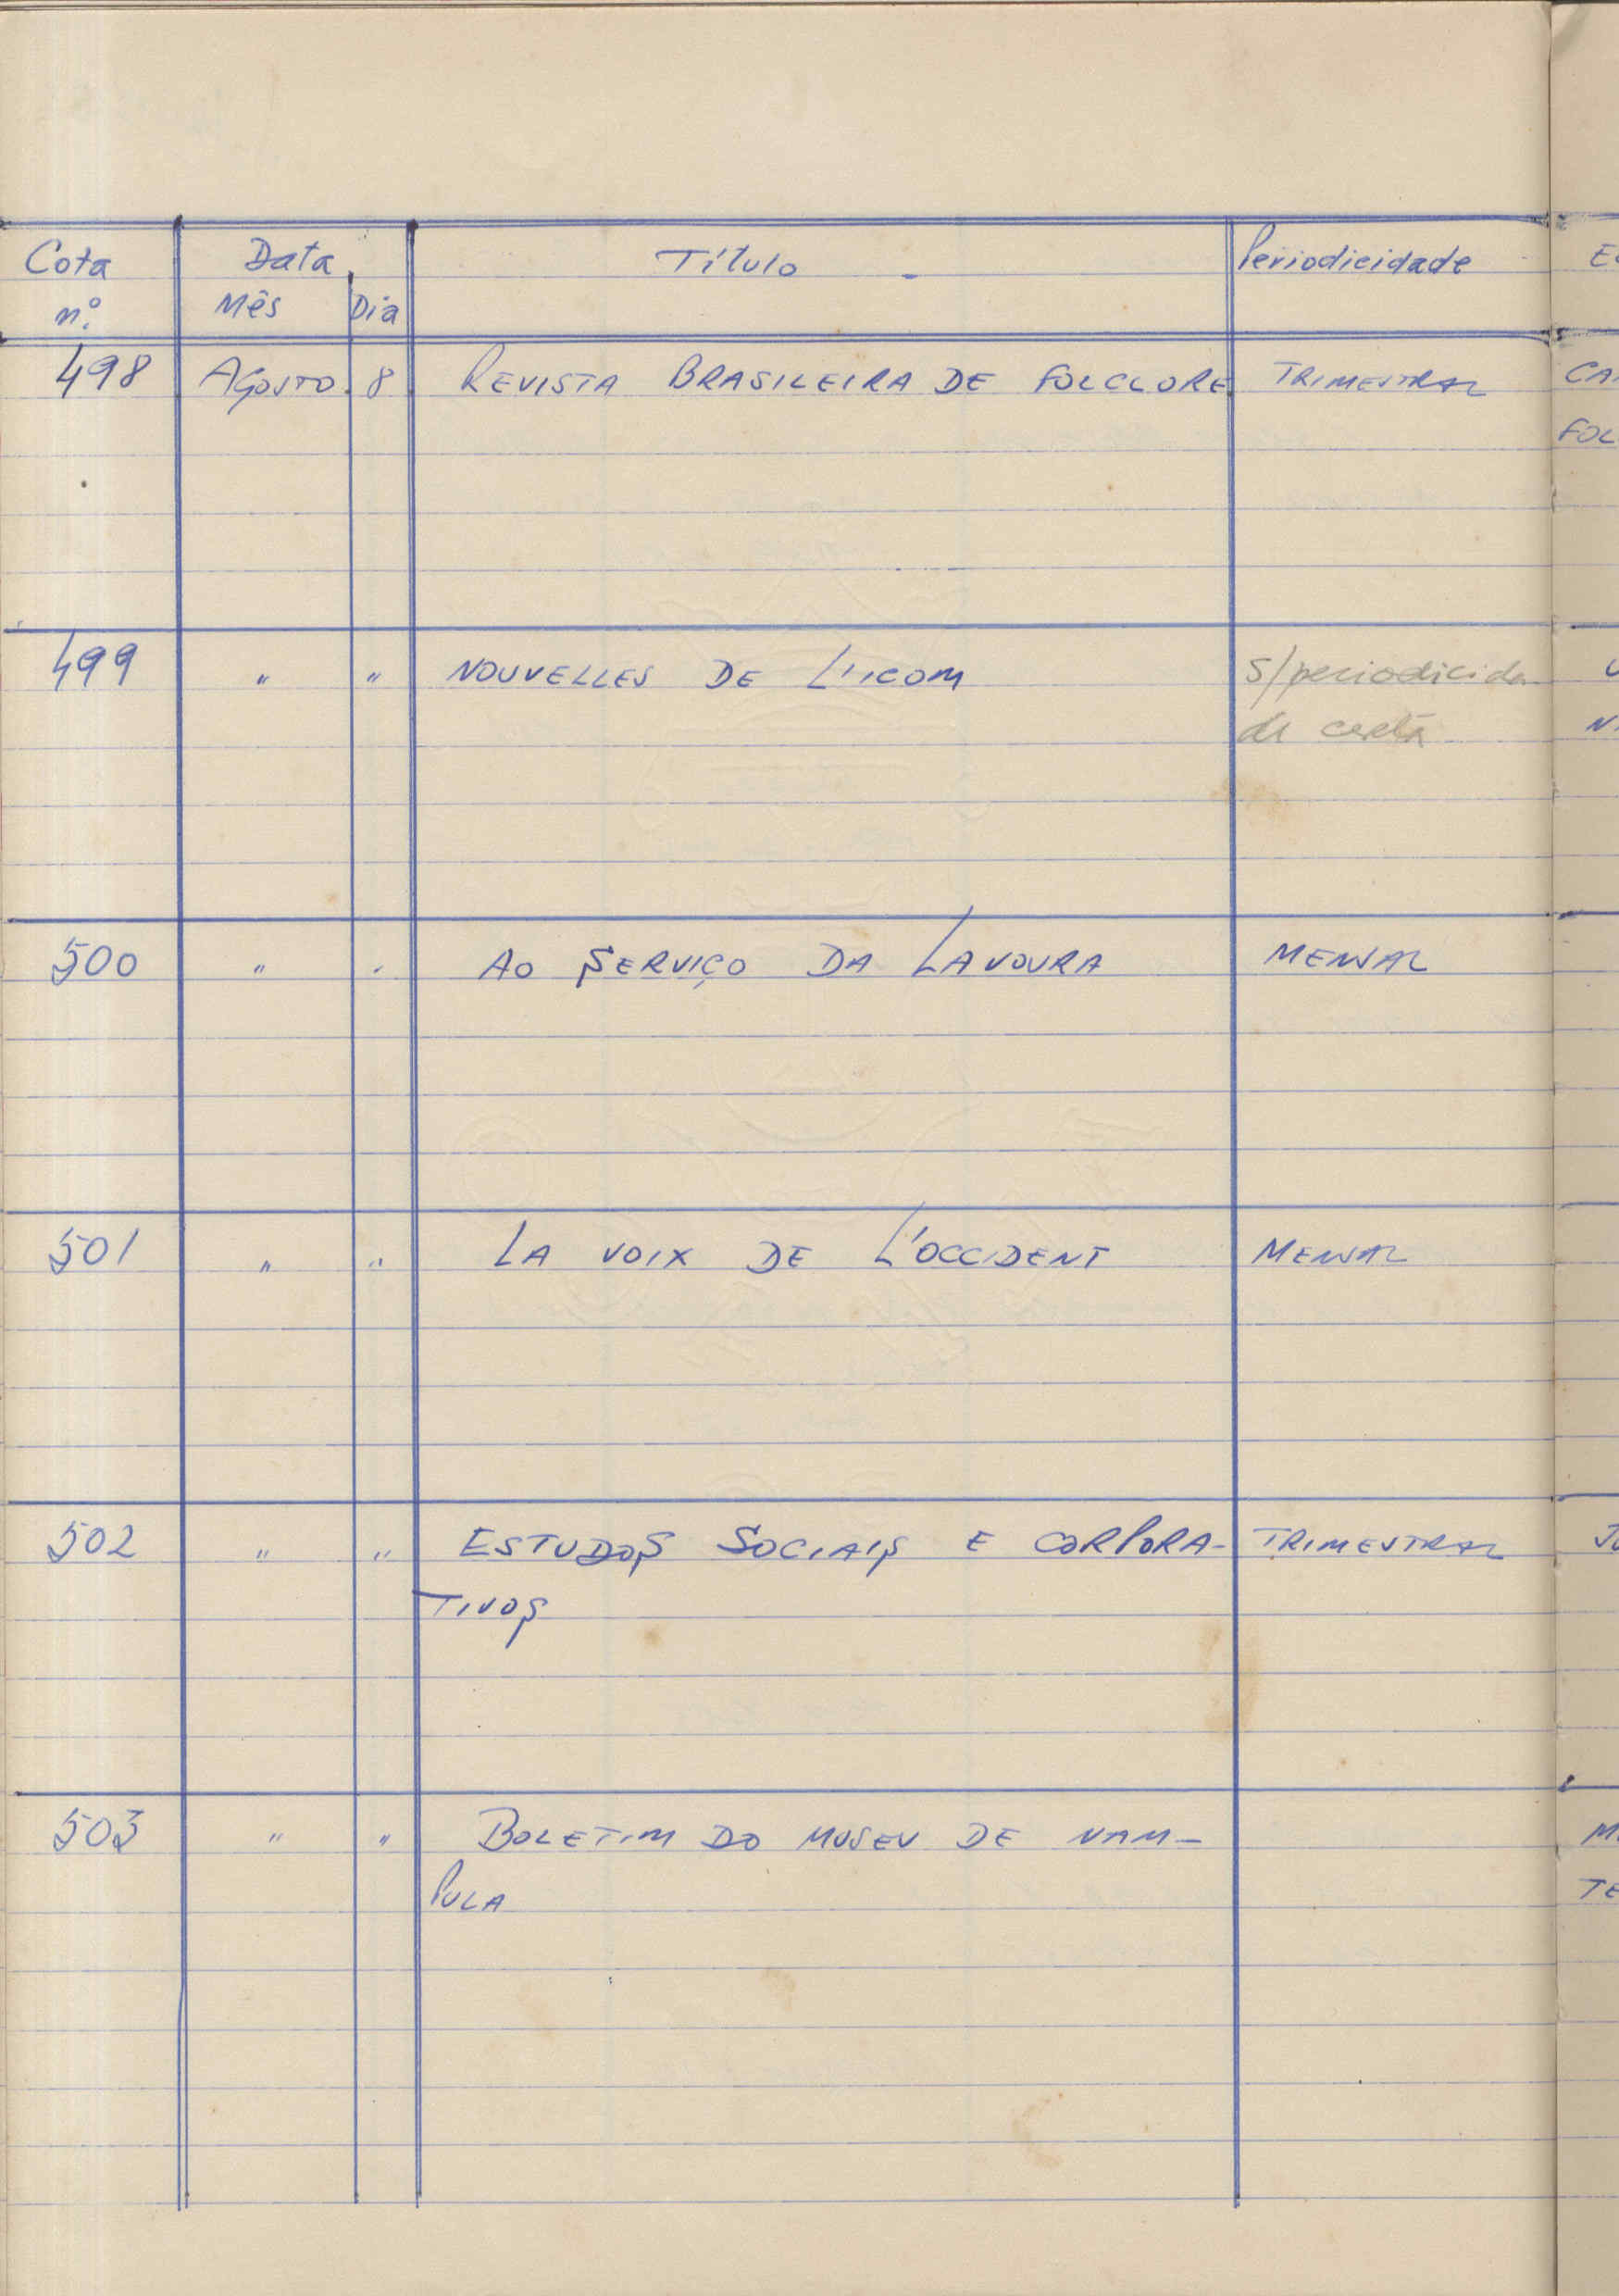 Cota Data Título - Periodicidade
nº. Mês Dia
498 Agosto 8 REVISTA BRASILEIRA DE FOLCLORE TRIMESTRAL CA
FOL
499 " " NOUVELLES DE L'ICOM S/periodicida
de certa N
500 " " AO SERVIÇO DA LAVOURA MENSAL
501 " " LA VOIX DE L'OCCIDENT MENSAL
502 " " ESTUDOS SOCIAIS E CORPORA- TRIMESTRAL
TIVOS
503 " " BOLETIM DO MUSEU DE NAM- M
PULA TE